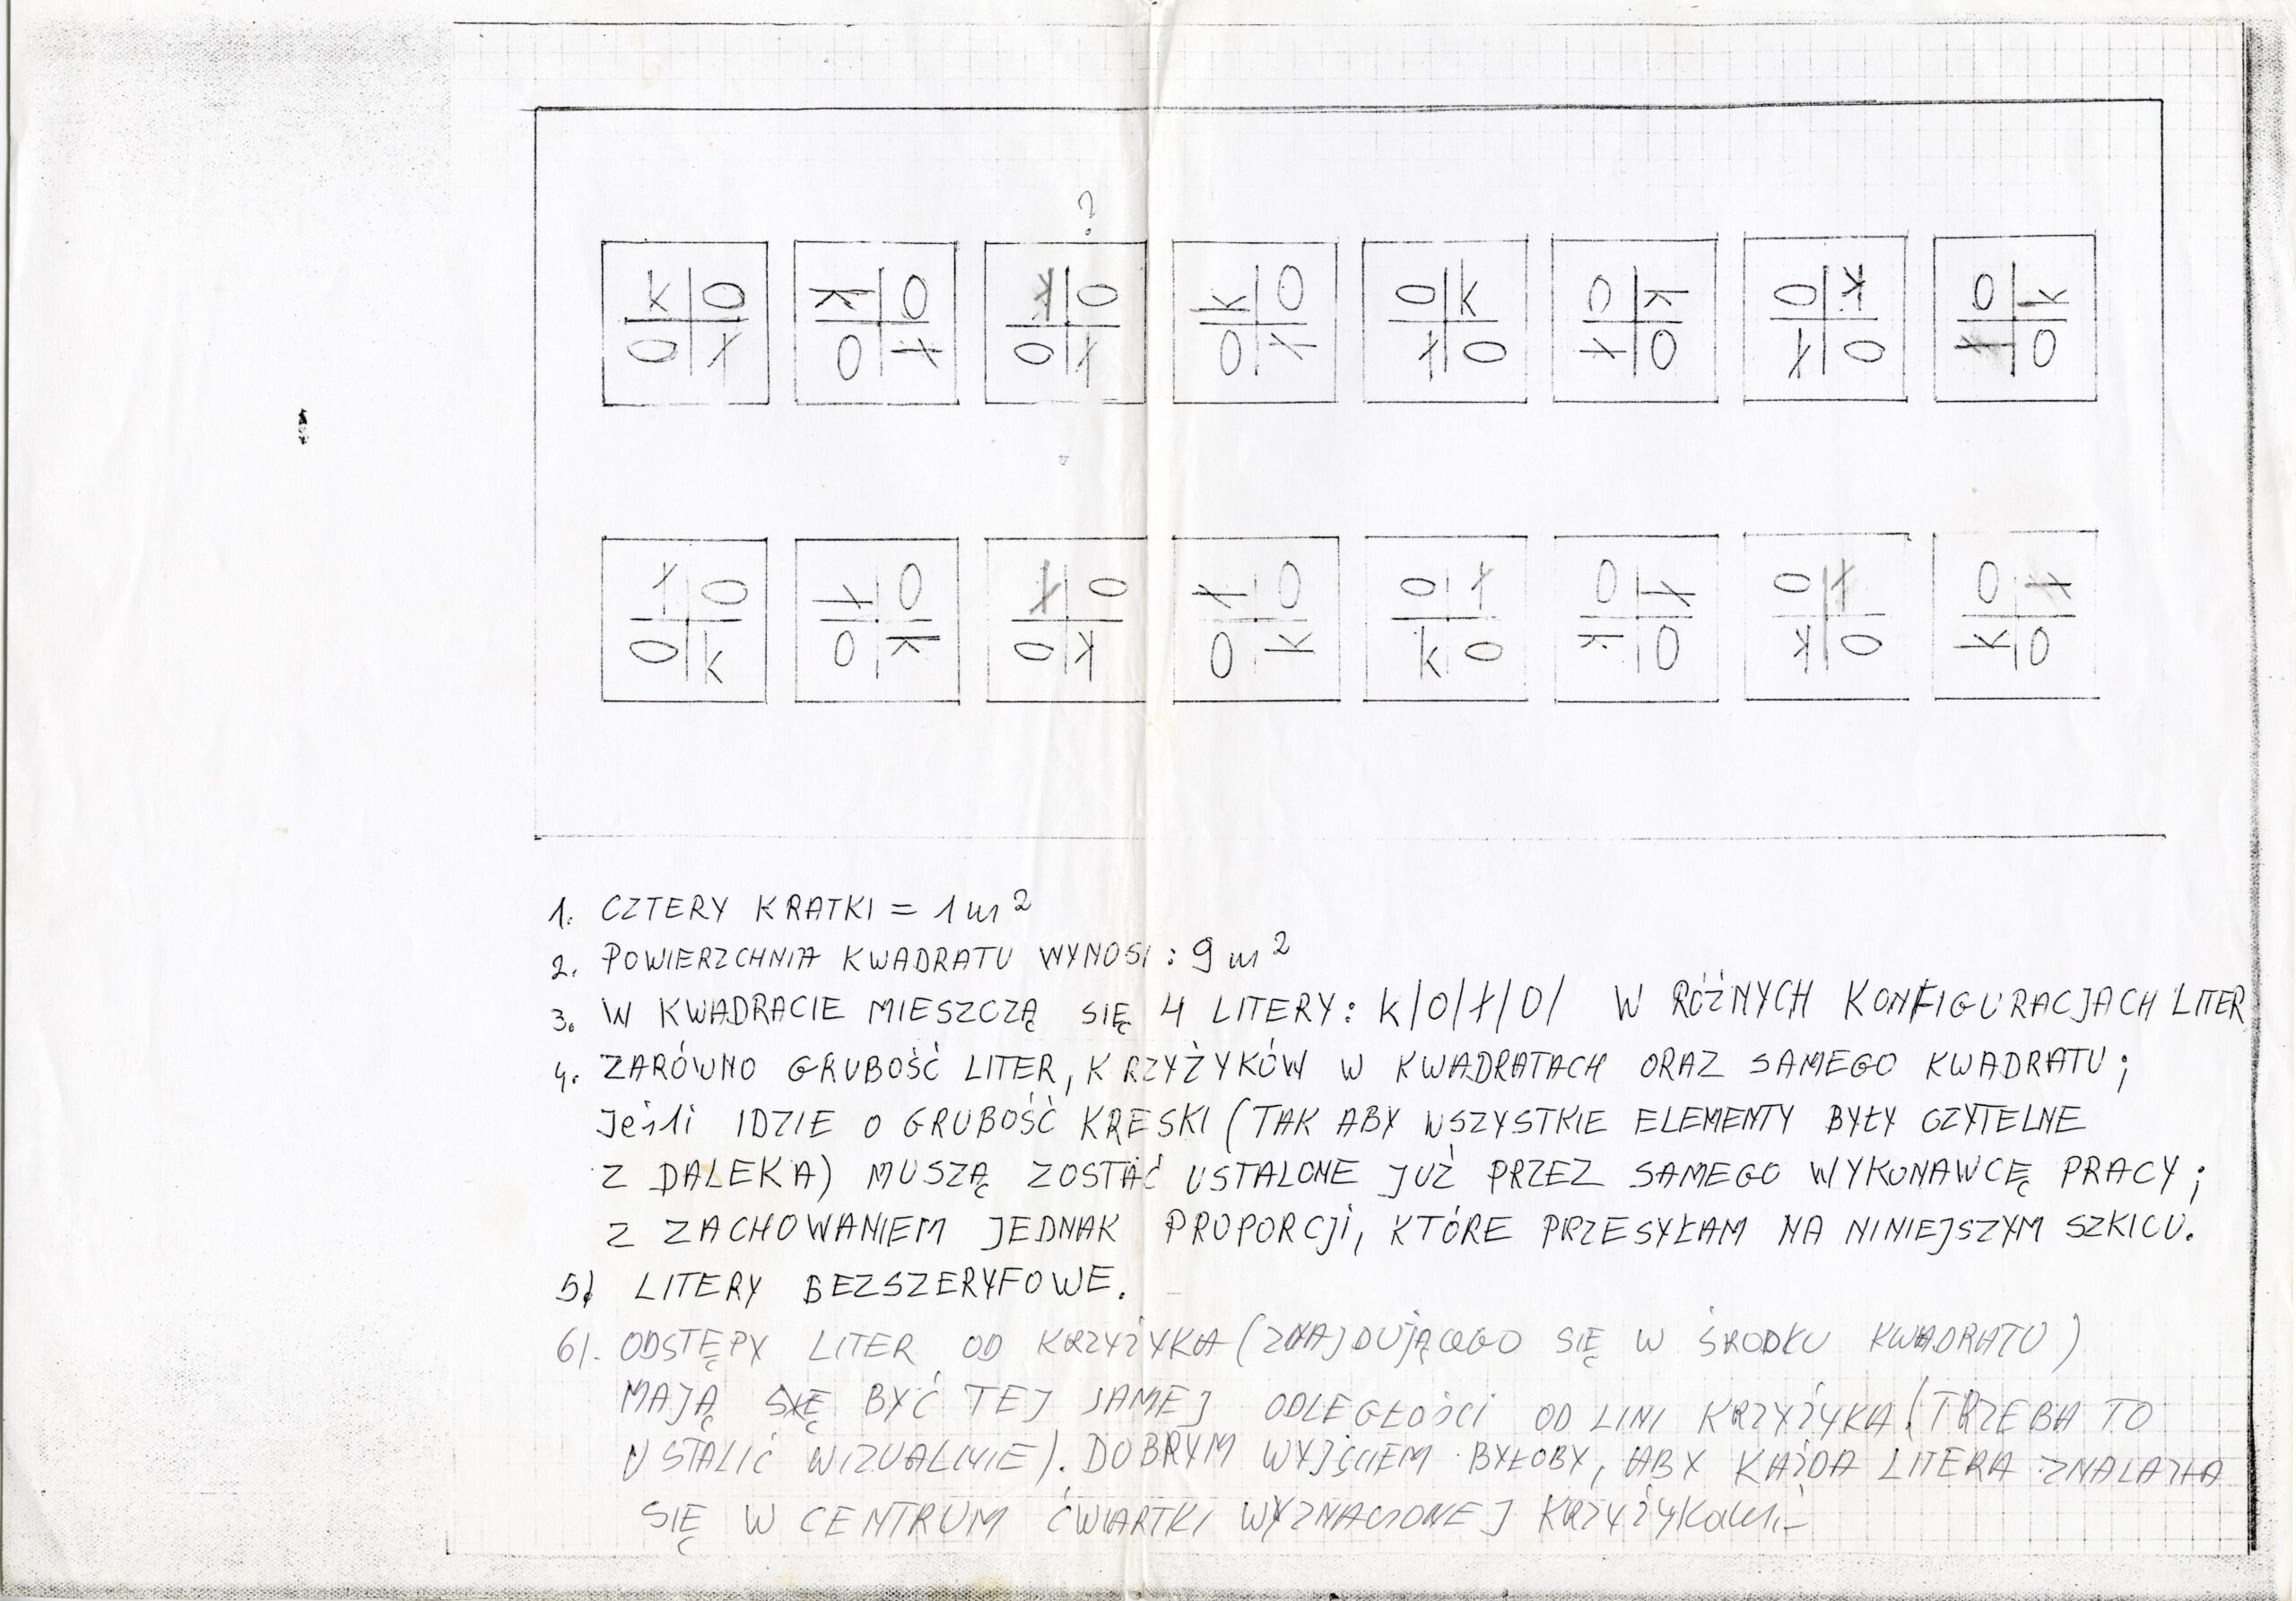 ?
k O k O k O k O O k O k O k O k
O ł O ł O ł O ł ł O ł O ł O ł O
ł O ł O ł O ł O O ł O ł O ł O ł
O k O k O k O k k O k O k O k O
1. CZTERY KRATKI = 1m²
2. POWIERZCHNIA KWADRATU WYNOSI : 9m²
3. W KWADRACIE MIESZCZĄ SIĘ 4 LITERY: k/O/ł/O/ W RÓŻNYCH KONFIGURACJACH LITER
4. ZARÓWNO GRUBOŚĆ LITER, KRZYŻYKÓW W KWADRATACH ORAZ SAMEGO KWADRATU;
Jeśli IDZIE O GRUBOŚĆ KRESKI (TAK ABY WSZYSTKIE ELEMENTY BYŁY CZYTELNE
Z DALEKA) MUSZĄ ZOSTAĆ USTALONE JUŻ PRZEZ SAMEGO WYKONAWCĘ PRACY;
Z ZACHOWANIEM JEDNAK PROPORCJI, KTÓRE PRZESYŁAM NA NINIEJSZYM SZKICU.
5) LITERY BEZSZERYFOWE.
6). ODSTĘPY LITER OD KRZYŻYKA (ZNAJDUJĄCEGO SIĘ W ŚRODKU KWADRATU)
MAJĄ SIĘ BYĆ TEJ SAMEJ ODLEGŁOŚCI OD LINI KRZYŻYKA (TRZEBA TO
USTALIĆ WIZUALNIE). DOBRYM WYJŚCIEM BYŁOBY, ABY KAŻDA LITERA ZNALAZŁA
SIĘ W CENTRUM ĆWIARTKI WYZNACZONEJ KRZYŻYKAMI.